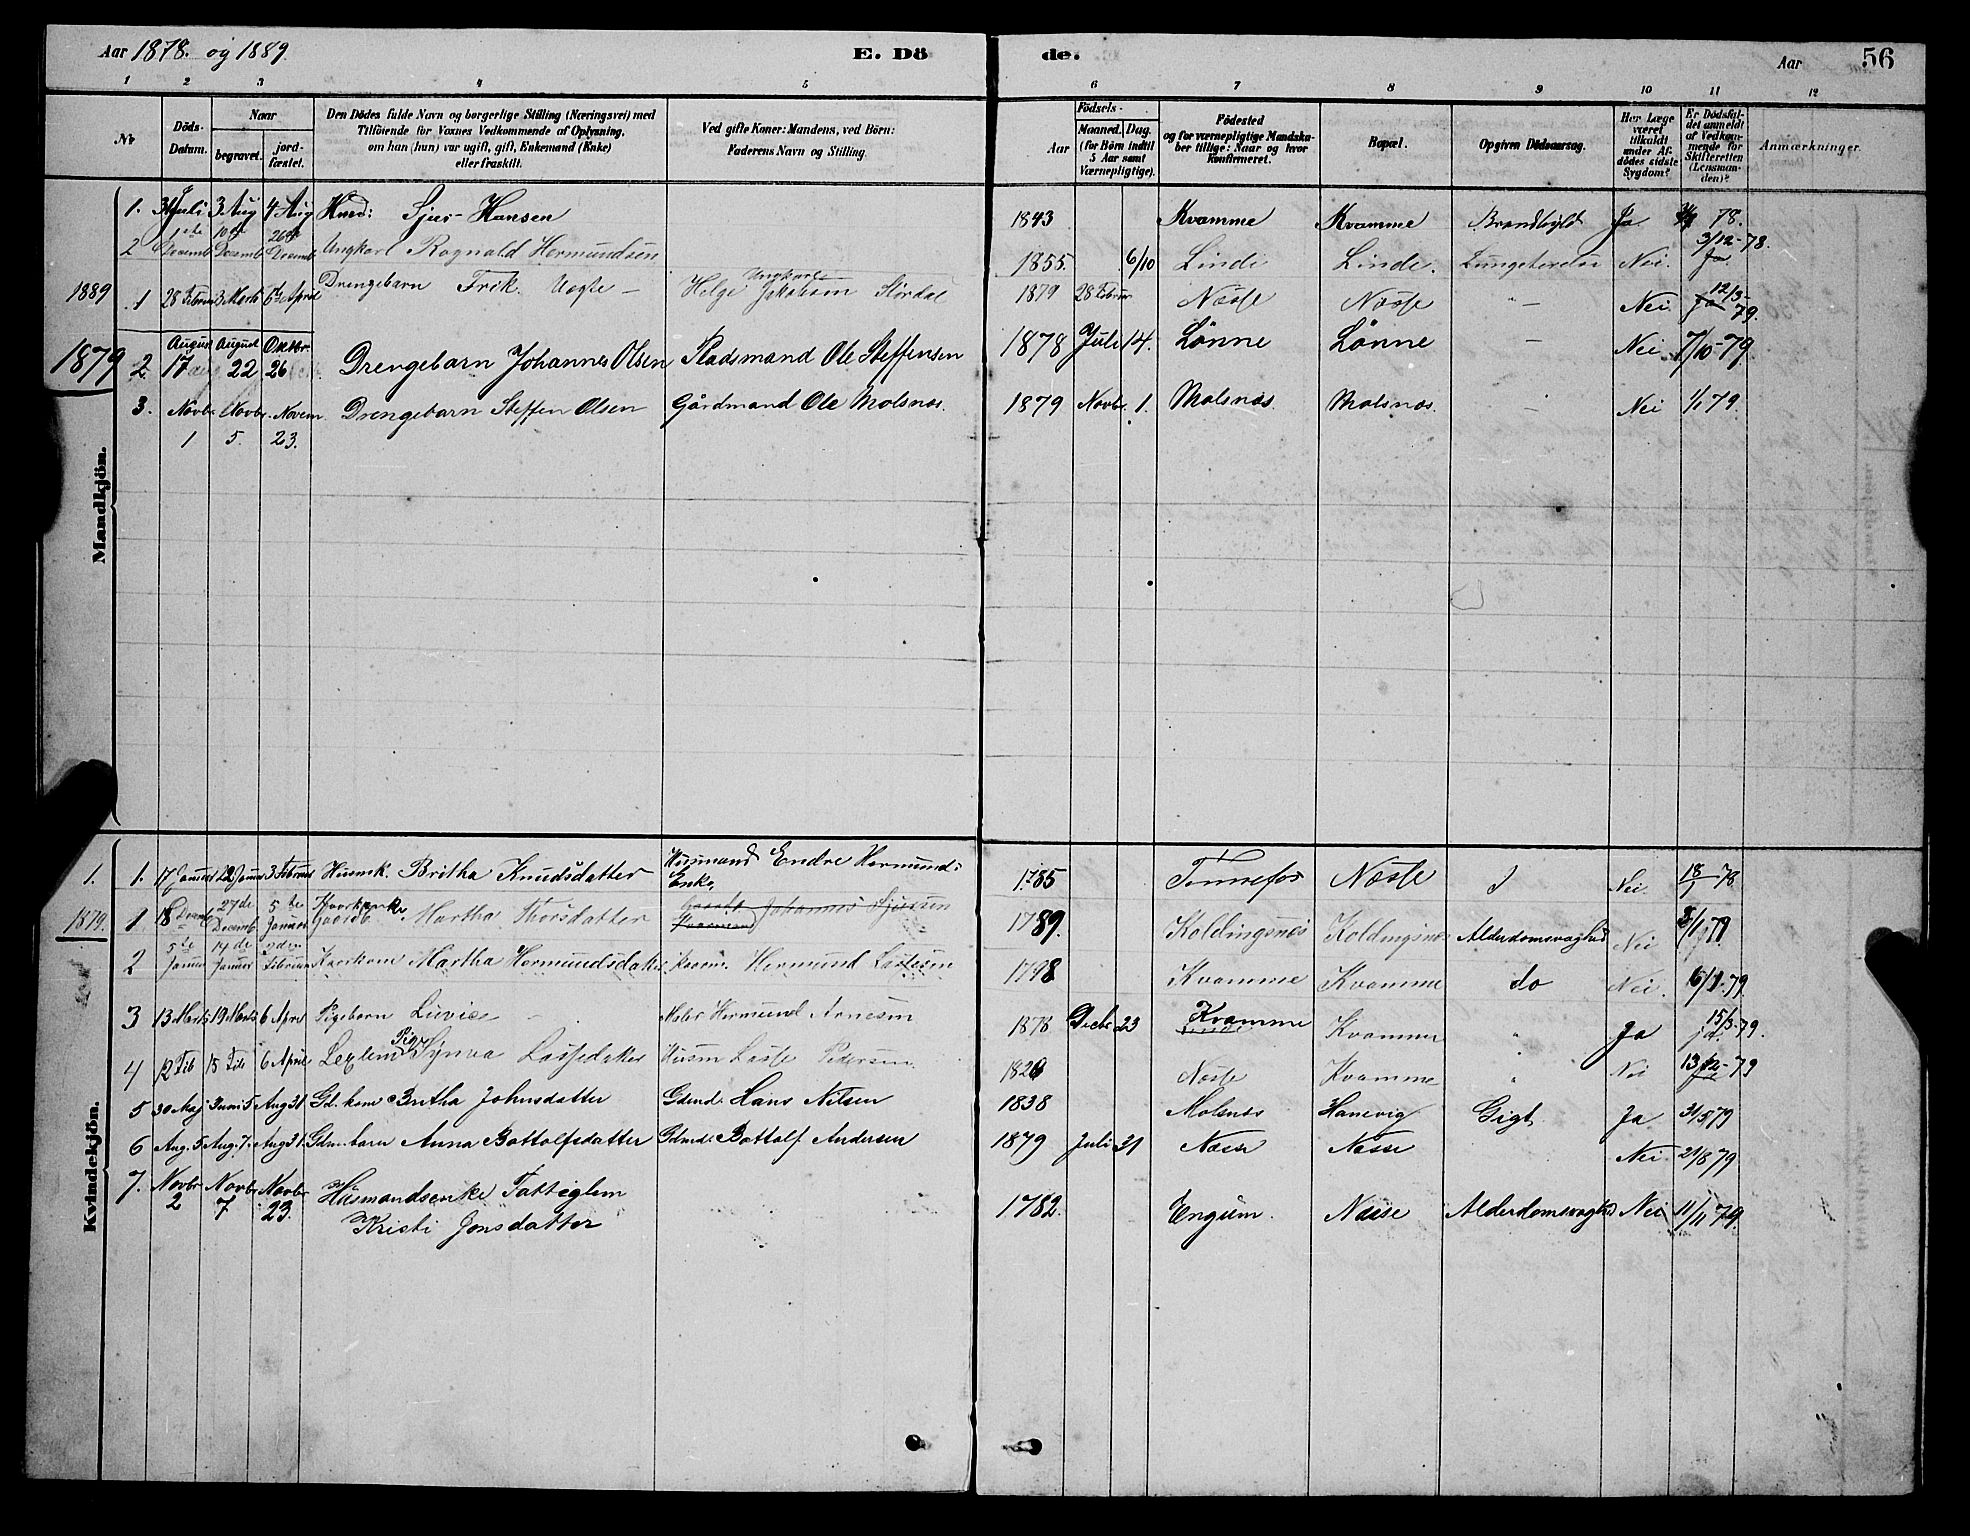 Aar 1878. og 1889.
E. Dö
de.
Aar
56
1 2 3 4 5 6 7 8 9 10 11 12
No
Döds-Datum.
Naar
begravet.
jord-fæstet.
Den Dödes fulde Navn og borgerlige Stilling (Næringsvei) med
Tilföiende for Voxnes Vedkommende af Oplysning,
om han (hun) var ugift, gift, Enkemand (Enke)
eller fraskilt.
Ved gifte Koner: Mandens, ved Börn:
Faderens Navn og Stilling.
Aar
Födsels-
Maaned. Dag.
(for Börn indtil
5 Aar samt
Værnepligtige).
Födested
og for værnepligtige Mandska-
ber tillige: Naar og hvor
Konfirmeret.
Bopæl.
Opgiven Dödsaarsag.
Har Læge
været
tilkaldt
under Af-
dödes sidste
Sygdom?
Er Dödsfal-
det anmeldt
af Vedkom-
mende for
Skifteretten
(Lensman-
den)?
Anmærkninger.
Mandkjön.
1. 31 Juli 3 Aug 4 Aug Husm: Sjur Hansen 1843 Kvamme Kvamme Ja 78.
2 1ste Decemb 10de Decemb 26de Decemb Ungkarl Rognald Hermundsen 1855. 6/10 Linde Linde. Nei. 3/12-78. Ja
1889 1 28 Februar 3 Marts 6te April Drengebarn Helge Jakobsen Ungkarl 1879 28 Februar Næsse Næsse - Nei 12/3-79. Ja
1879 2 August 17 August 22 Oktbr. 26 Drengebarn Johannes Olsen Pladsmand Ole Steffensen 1878 Juli 14. Lønne Lønne - Nei 7/10-79.
3. Novbr. 1 Novbr. 5. Novem 23. Drengebarn Steffen Olsen Gårdmand Ole Molsnæs. 1879 Novbr. 1. Molsnæs Molsnæs. - Nei 79.
Kvindekjön.
1. 1. 17 Januar 22 Januar 3 Februar Husmk. Britha Knudsdatter Husmand Endre Hermunds: Enke 1785 Næsse Nei. 18/1 78
1879. 1 18 Decemb 27de Decemb 5te Januar Kaarkone Martha Thorsdatter Johannes Sjursen 1789. Koldingsnæs Koldingsnæs Alderdomsvaghed Nei 79
2 5te Januar 14de Januar 2den Februar Kaarkone Martha Hermundsdatter Kaarm. Hermund Lassesen 1798 Kvamme Kvamme do Nei. 79.
3 13 Marts 19 Marts 6 April Pigebarn Hermund Arnesen 1878 Decbr 23 Kvamme Kvamme " Ja 15/3-79.
4 12 Feb 15 Feb 6 April Pige Synva Lassedatter Husm Lasse Pedersen. Næsse Kvamme " Nei 79
5 30 Maj Juni 5 Aug 31 Gd. kone Britha Johnsdatter Gdmd. Hans Nilsen 1838 Molsnæs Hanevig Gigt Ja 31/5 79
6 Aug. 5 Aug. 7. Aug 31. Gdm. barn Anna Bottolfsdatter Gdmd. Bottolf Andersen 1879 Juli 21 Næsse Næsse Nei 21/8 79
7. Novbr 2 Novbr 7 Novbr 23. Husmandsenke Fattiglem
Kristi Jonsdatter 1782. Engum. Næsse Alderdomsvaghed Nei 11/11 79.